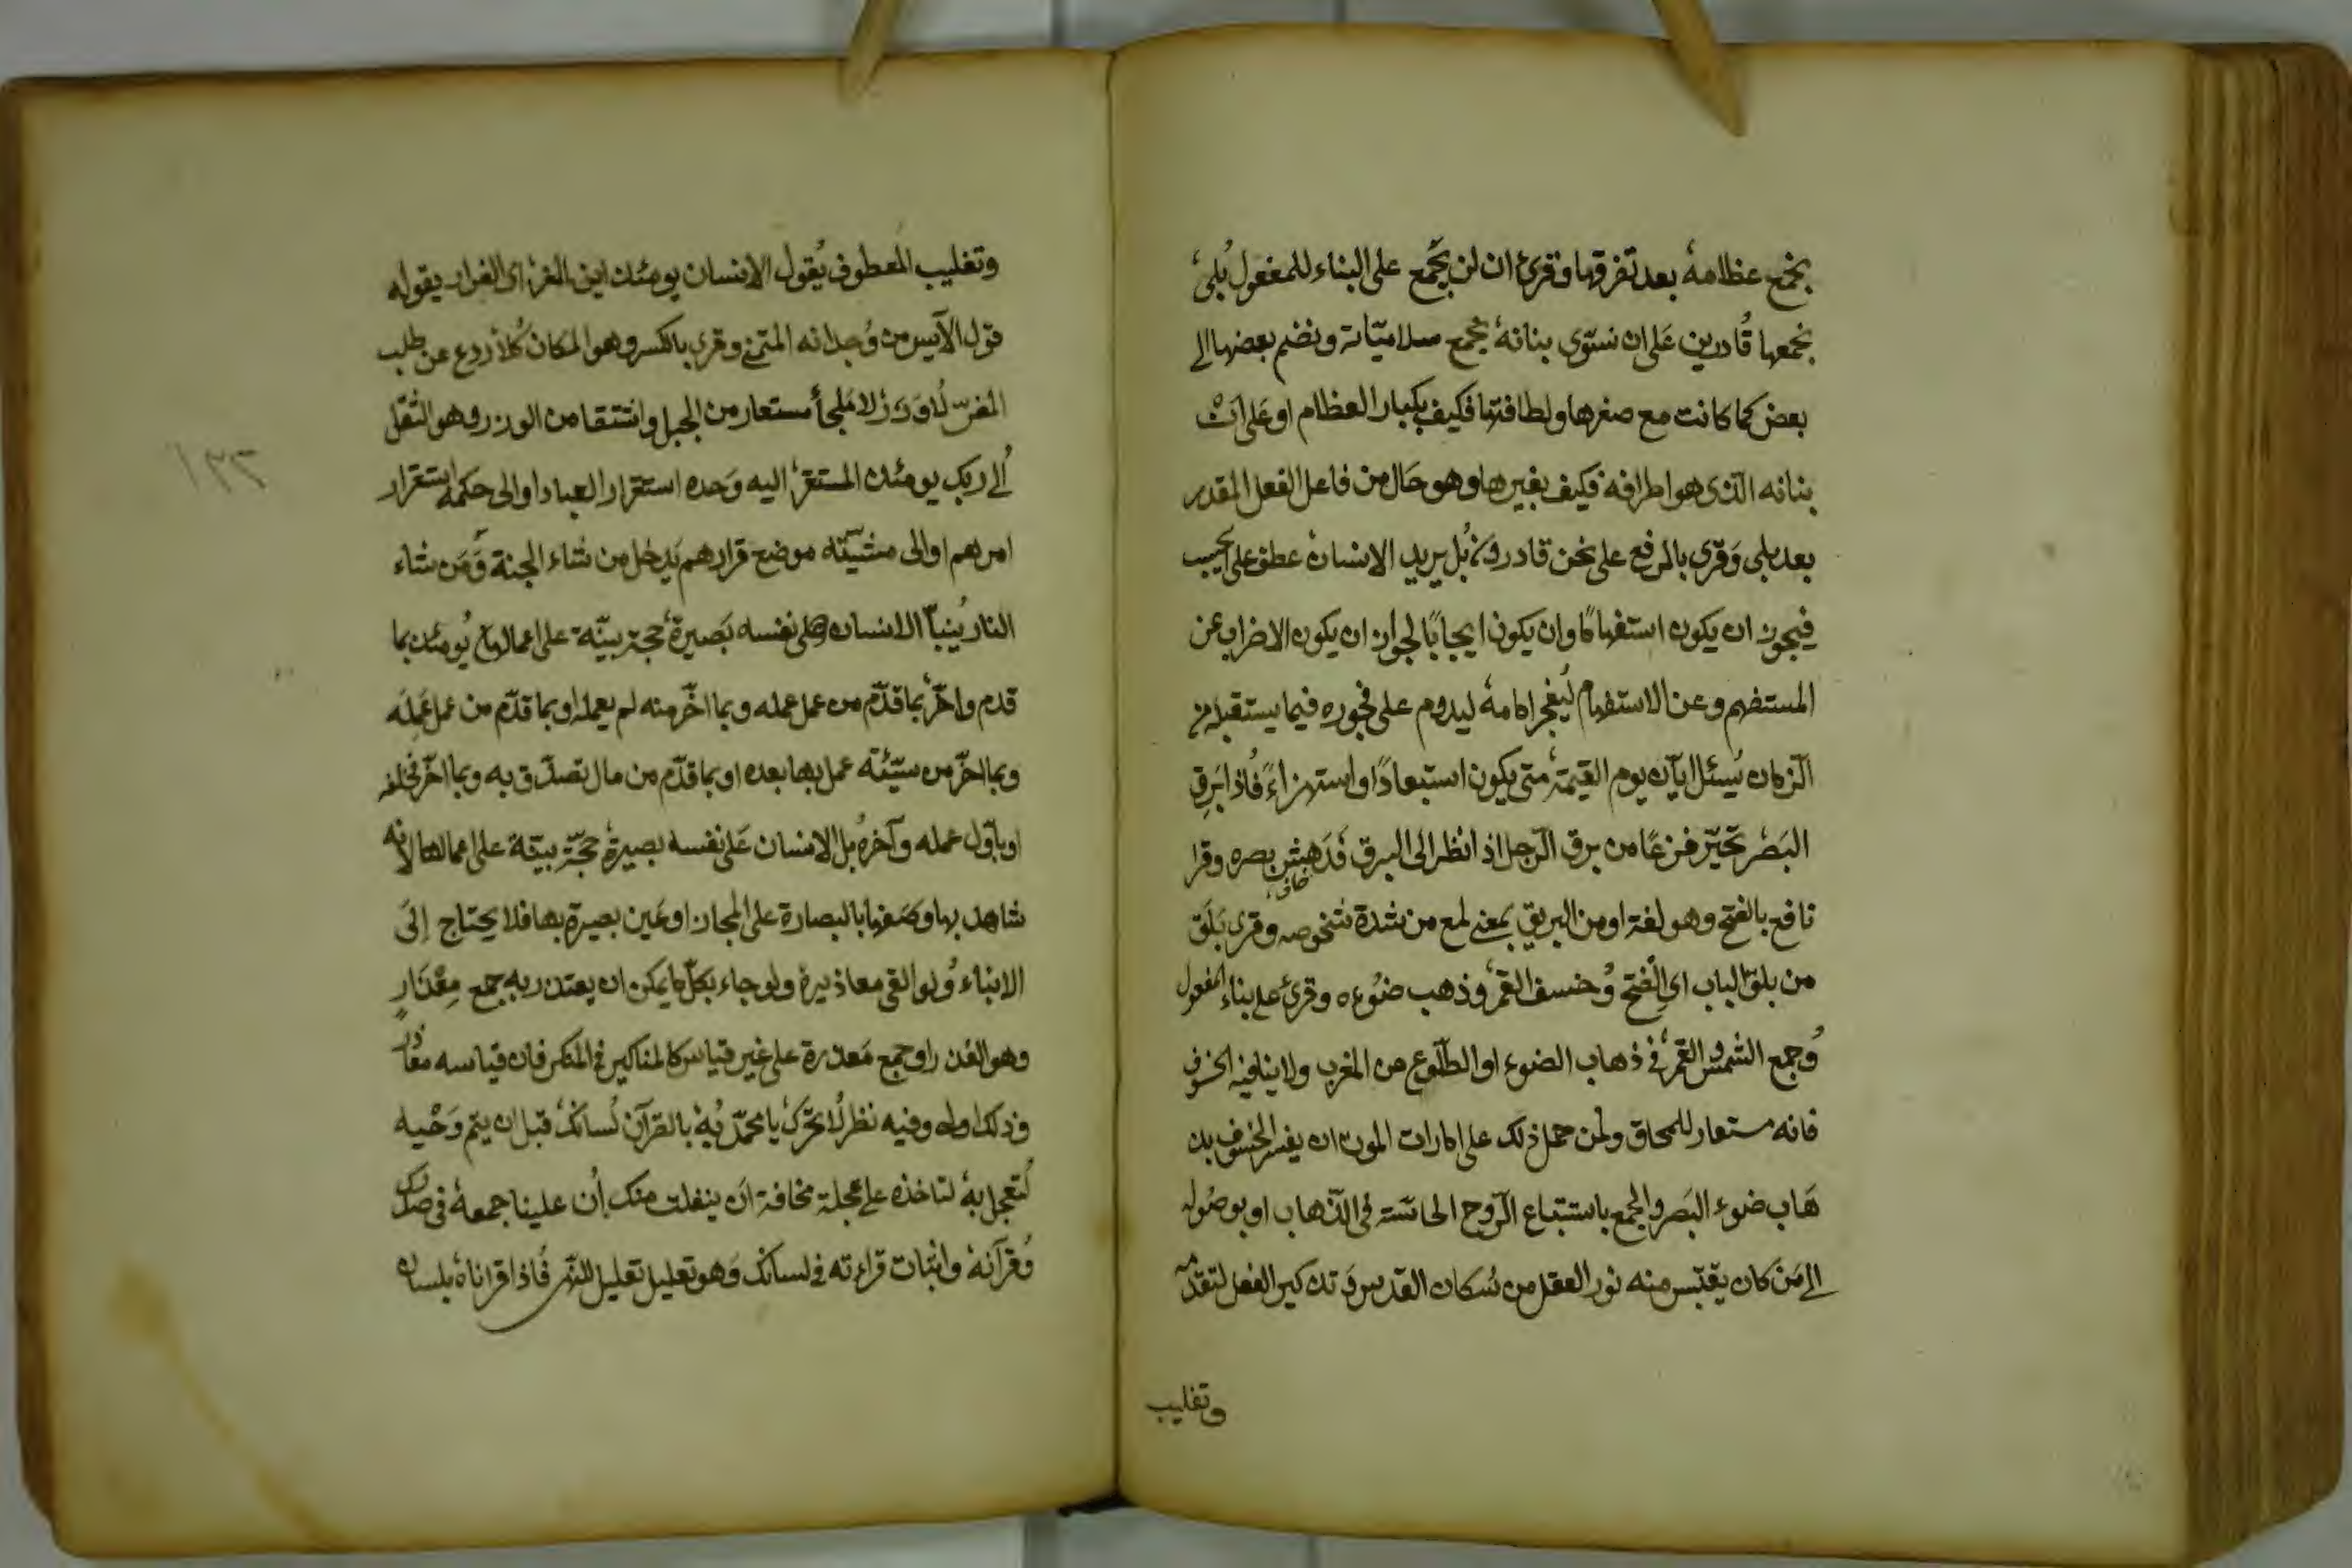 نجمع عظامه بعد تفرقها وقرئ ان لن يجمع على البناء للمفعول بلى
نجمعها قادرين على ان نسوّى بنانه بجمع سلاميّاته ونضم بعضها الى
بعض كما كانت مع صغرها ولطافتها فكيف بكبار العظام او على ان
بنانه الذى هو اطرافه فكيف بغيرها وهو حال من فاعل الفعل المقدر
بعد بلى وقرئ بالرفع على نحن قادرون بل يريد الانسان عطف على ايحسب
فيجوز ان يكون استفهامًا وان يكون ايجابًا لجواز ان يكون الاضراب عن
المستفهم وعن الاستفهام ليفجر امامه ليدوم على فجوره فيما يستقبله من
الزمان يسئل ايّان يوم القيمة متى يكون استبعادًا او استهزاءً فاذا برق
البصر تحيّر فزعًا من برق الرجل اذ انظر الى البرق فدهش بصره وقرا
نافع بالفتح وهو لغة او من البريق بمعنى لمع من شدة شخوصه وقرئ بلق
من بلق الباب اى الفتح وخسف القمر وذهب ضوءه وقرئ على بناء المفعول
وجمع الشمس والقمر فى ذهاب الضوء او الطلوع من المغرب ولا ينافيه الخسوف
فانه مستعار للمحاق ولمن حمل ذلك على امارات الموت ان يفسر الخسوف بذ
هاب ضوء البصر والجمع باستتباع الروح الحاسّة فى الذهاب او بوصوله
الى من كان يقتبس منه نور العقل من سكان القدس وتذكير الفعل لتقدمه
وتغليب
وتغليب المعطوف يقول الانسان يومئذ اين المفر اى الفرار يقوله
قول الآيس من وجدانه المتمنى وقرئ بالكسر وهو المكان كلا ردع عن طلب
المفرّ لا وزر لا ملجأ مستعار من الجبل واشتقا من الوزر وهو الثقل
الى ربك يومئذ المستقر اليه وحده استقرار العباد او الى حكمه استقرار
امرهم او الى مشيّته موضع قرارهم يدخل من شاء الجنة ومن شاء
النار ينبأ الانسان على نفسه بصيرة حجة بيّنة على اعمالها يومئذ بما
قدم واخّر بما قدّم من عمل عمله وبما اخّر منه لم يعمله او بما قدّم من عمل عمله
وبما اخّر من سيّئة عمل بها بعده او بما قدّم من مال تصدّق به وبما اخّر فخلفه
او باوّل عمله وآخره بل الانسان على نفسه بصيرة حجّة بيّنة على اعمالها لانه
شاهد بها وصفها بالبصارة على المجاز او عين بصيرة بها فلا يحتاج الى
الانباء ولو القى معاذيره ولو جاء بكلّ ما يمكن ان يعتذر به جمع معذار
وهو العذر او جمع معذرة على غير قياس كالمناكير فى المنكر فان قياسه معاذر
وذلك اولى وفيه نظر لا تحرّك يا محمّد به بالقرآن لسانك قبل ان يتم وحيه
لتعجل به لتاخذه على عجلة مخافة ان ينفلت منك ان علينا جمعه فى صدرك
وقرآنه واثبات قراءته فى لسانك وهو تعليل تعليل للنهى فاذا قراناه بلسان
١٣٢